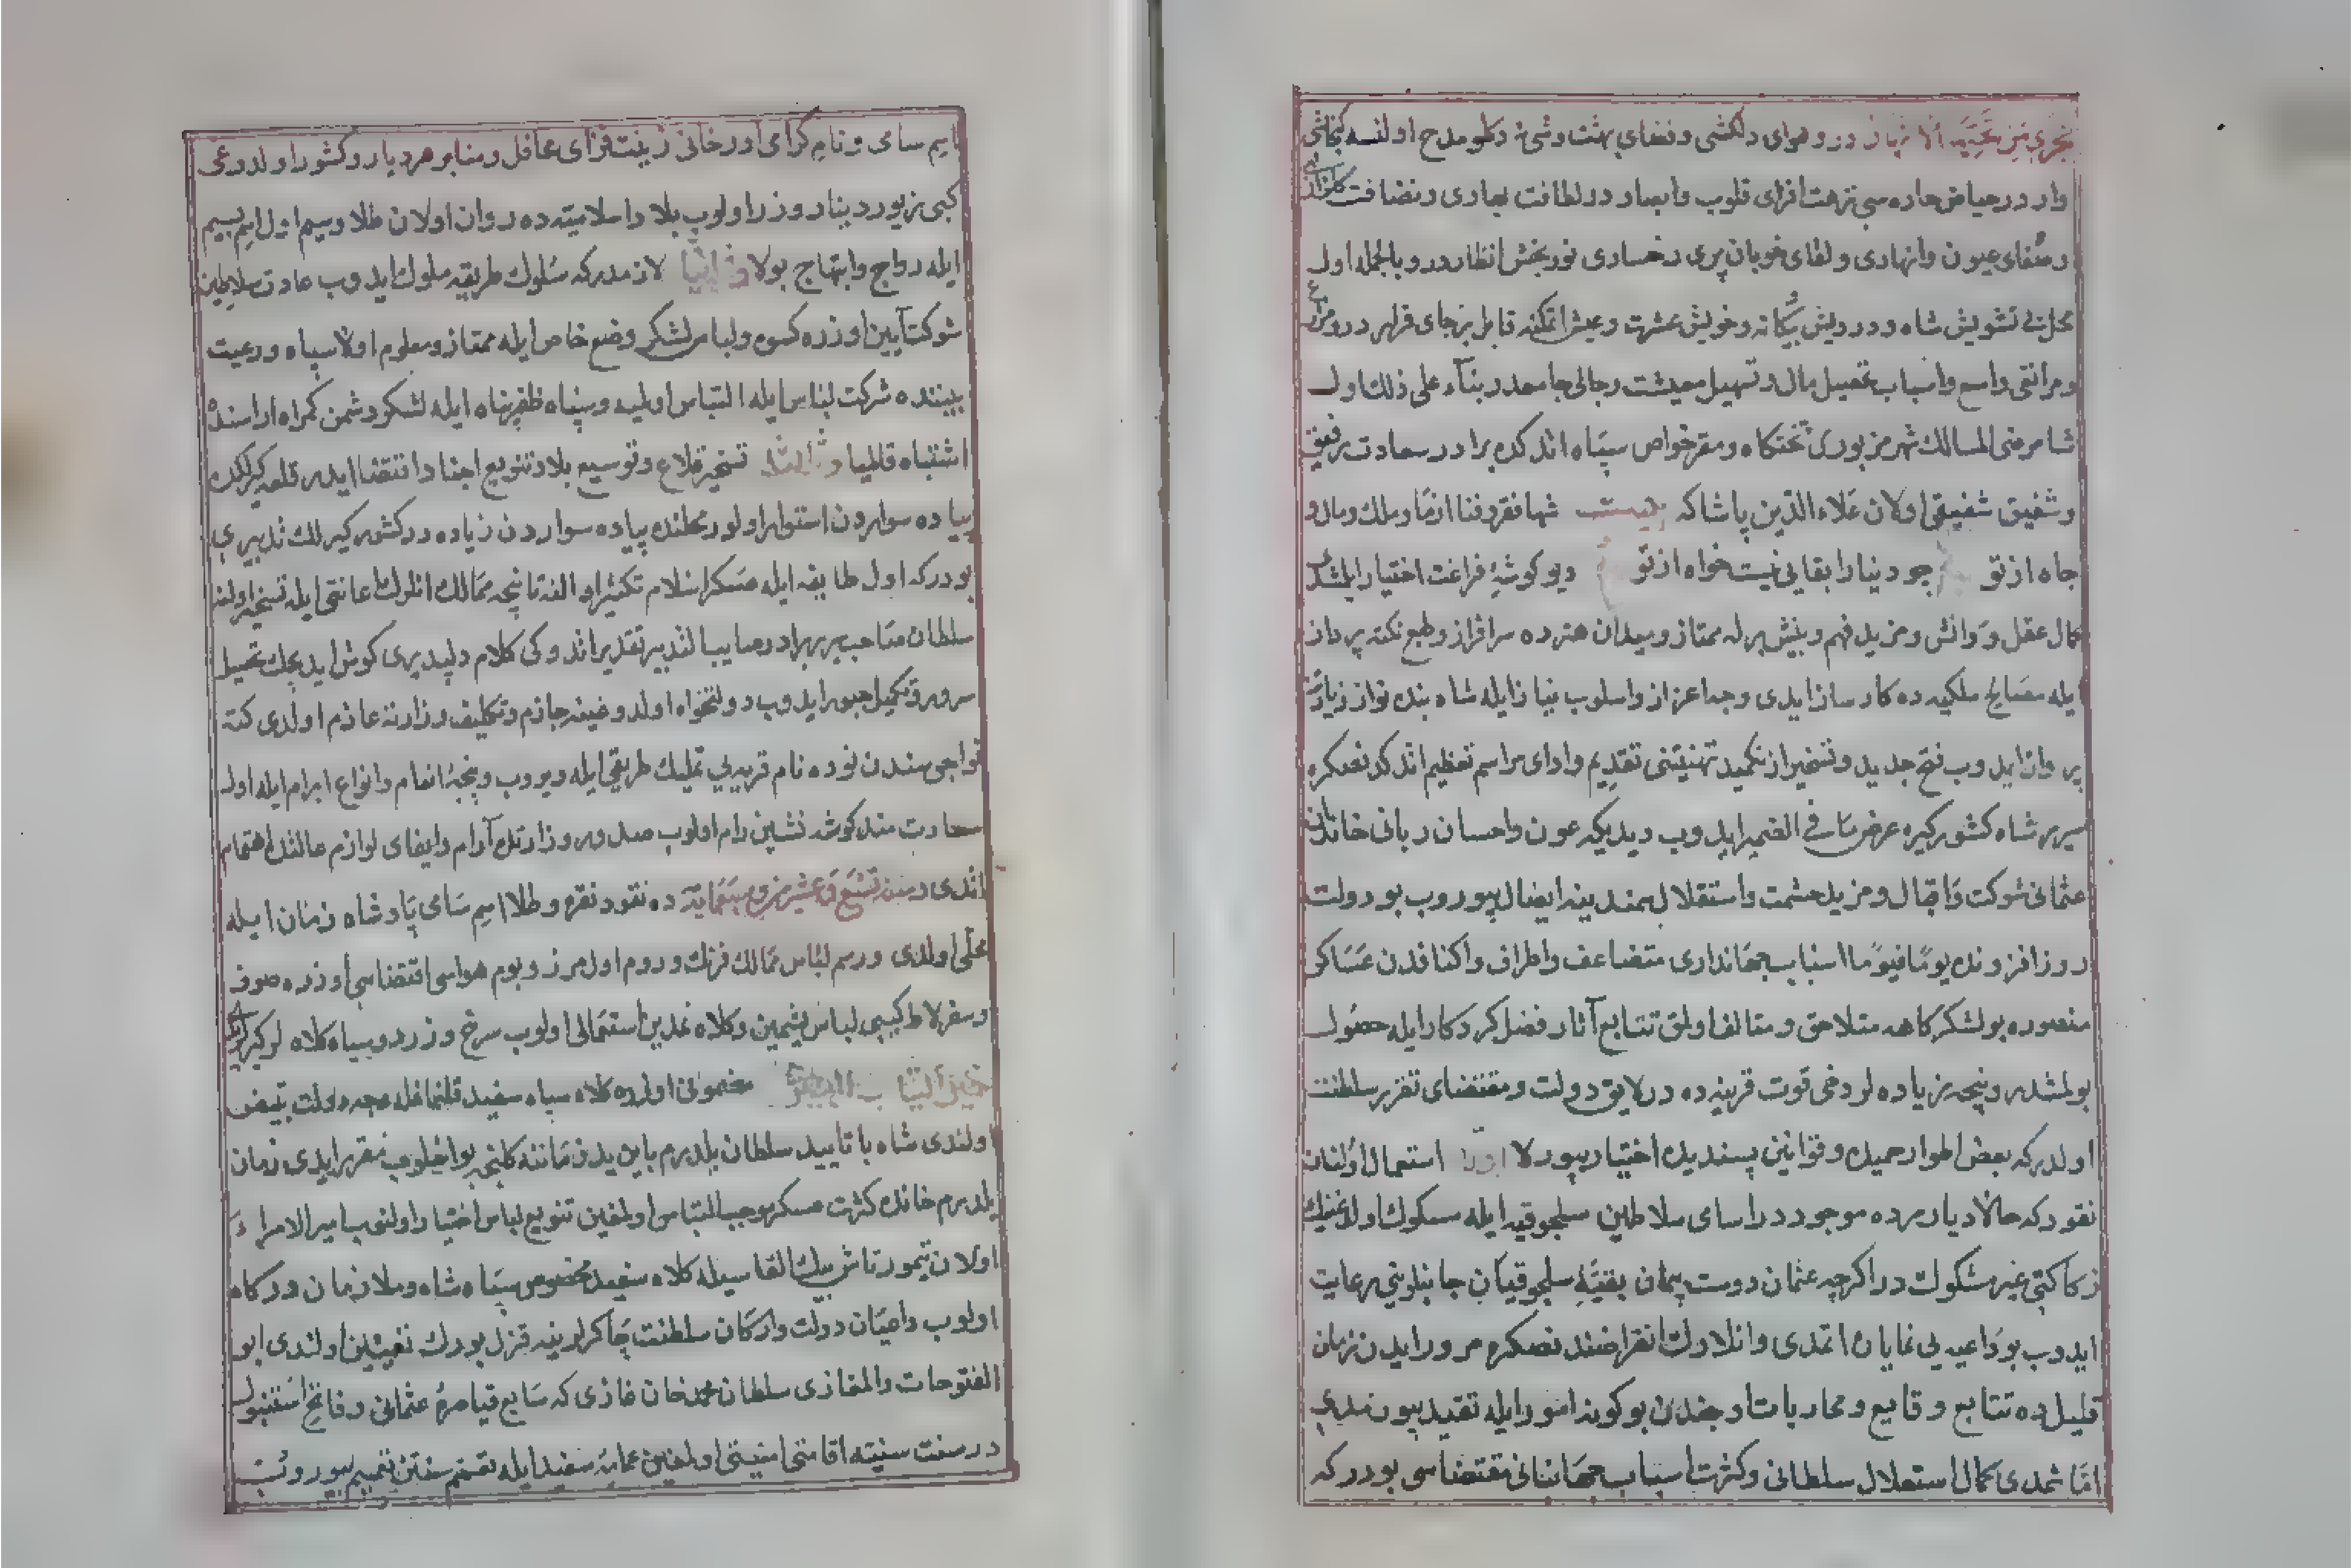 تجری من تحتها الانهار در و هوای دلکشی و فضای بهشت وشی نه دکلو مدح اولنسه کنجایشی
وار در حیاض جاده سی نزهت افزای قلوب و ابصار در لطافت بهاری و نضافت گلزاری
و صفای عیون و انهاری و لقای خوبان پری رخساری نور بخش انظار در و بالجمله اول
محل بی تشویش شاه و درویش بیگانه و خویش عشرت و عیش اتمکنه قابل بر جای فرله در و مرابع
و مرافقی واسع و اسباب تحصیل مال و تسهیل معیشت رجالی جامعدر بناء علی ذلک اول
شاه مرضی المسالک شهر مزبوری تختکاه و مقر خواص سپاه اندکده برادر سعادت رفیق
و شفیق شفیقی اولان علاء الدین پاشا که بیت شها فقر و فنا از ما و ملک و مال و
جاه از تو چو دنیا را بقایی نیست خواه از تو دیو کوشهٔ فراغت اختیار ایلمشدی
کمال عقل و دانش و مزید فهم و بینش برله ممتاز و میدان هنرده سرافراز و طبع نکته پرداز
ایله مصالح ملکیه ده کارساز ایدی وجه اعزاز و اسلوب نیاز ایله شاه بنده نواز زیارتنه
پرواز ایدوب فتح جدید و تسخیر ازنکمید تهنیتنی تقدیم و ادای مراسم تعظیم اتدکدنصکره
سریر شاه کشورکیره عرض ما فی الضمیر ایدوب دیدیکه عون و احسان ربانی خاندان
عثمانی شوکت و اقبال و مزید حشمت و استقلال همدینه ایصال بیوروب بو دولت
روز افزونده یوما فیوما اسباب جهانداری متضاعف و اطراف و اکنافدن عساکر
منصوره بو لشکرکاهه متلاحق و متالف اولق تتابع آثار فضل کردکار ایله حصول
بولمشدر و نیجه بر زیاده لر دخی قوت قریبه ده در لایق دولت و مقتضای تقریر سلطنت
اولدر که بعض اطوار حمیده و قوانین پسندیده اختیار بیوریلا اولا استعمال اولنان
نقود که حالا دیارمزده موجود در اسامی سلاطین سلجوقیه ایله مسکوک اولدغینک
زکاکتی غیر مشکوک در اکرچه عثمان دوست پیمان بقیهٔ سلجوقیان جانبلرینی رعایت
ایدوب بو داعیه یی نمایان اتمدی و انلارک انقراضندنصکره مرور ایدن زمان
قلیلده تتابع وقایع و محاربات اوجندن بو کونه امور ایله تقید بیورمدی
اما شمدی کمال استقلال سلطانی و کثرت اسباب جهانبانی مقتضاسی بودر که
اسم سامی و نام کرامی اورخانی زینت فزای محافل و منابر هر دیار و کشور اولدوغی
کبی زیور دینار و زر اولوب بلاد اسلامیته ده روان اولان طلا و سیم اول اسم بسیم
ایله رواج و ابتهاج بولا و ثانیا لازمدر که سلوک طریقه ملوک ایدوب عادت سلاطین
شوکت آیین اوزره کسوه و لباس لشکر وضع خاص ایله ممتاز و معلوم اولا سپاه و رعیت
بیننده شرکت لباس ایله التباس اولمیه و سپاه ظفرپناه ایله لشکر دشمن کمراه اراسنده
اشتباه قالمیا و ثالثا تسخیر قلاع و توسیع بلاد تنویع اجناد اقتضا ایدر قلعه کیرلکده
پیاده سواردن استوار اولور محلنده پیاده سواردن زیاده در کشور کیرلک تدبیری
بودر که اول طایفه ایله عسکر اسلام تکثیر اولنه تا نیجه ممالک انلرک اعانتی ایله تسخیر اولنه
سلطان صاحب سریر برادر صایب التدبیر تقدیر اندوکی کلام دلپذیری کوش ایدیجک تحصیل
سرور و تکمیل حبور ایدوب دولتخواه اولدوغینه جازم و تکلیف وزارتنه عازم اولدی کته
نواحیسندن فوده نام قریه یی تملیک طریقی ایله ویروب و نیجه انعام و انواع ابرام ایله اول
سعادت مند کوشه نشین رام اولوب صدر وزارتده آرام و ایفای لوازم عدالته اهتمام
اتدی و سنه تسع و عشرین و سبعمایه ده نقود نقره و طلا اسم سامی پادشاه زمان ایله
محلی اولدی و رسم لباس ممالک فرنک و روم اول مرز و بوم هواسی اقتضاسی اوزره صوف
و سقرلاط کیبی لباس پشمین و کلاه نمدین استعمالی اولوب سرخ و زرد و سیاه کلاه لر کیرلردی
خیر الثیاب البیض مضمونی اوزره کلاه سپاه سفید قلنماغله وجه دولت تبیض
اولندی شاه با تایید سلطان یلدرم بایزید زماننه کلنجه بو اسلوب مقرر ایدی زمان
یلدرم خانده کثرت عسکر موجب التباس اولمغین تنویع لباس اختیار اولنوب امیر الامراء
اولان تیمورتاش بیک التماسیله کلاه سفید مخصوص سپاه شاه و ملازمان درکاه
اولوب و اعیان دولت و ارکان سلطنت چاکرلرینه قزل بورک تعیین اولندی ابو
الفتوحات و المغازی سلطان محمد خان غازی که سابع قیاصرهٔ عثمانی و فاتح استنبول
در سنت سنیه اقامتی امنیتی اولمغین عمامهٔ سفید ایله تعمیم سنتن تعمیم بیوروب